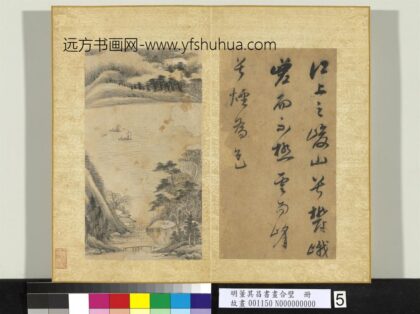 远方书画网-www.yfshuhua.com
江上之峻山兮鬱
而不極雲為峰
兮煙為色
明董其昌書畫合璧 冊
故畫 001150 N000000000
5